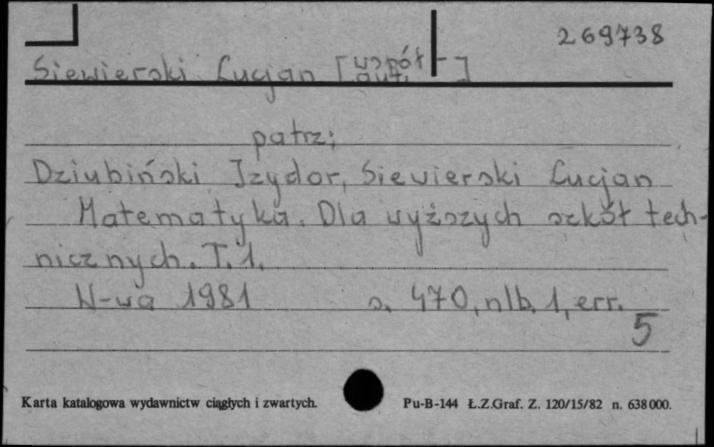 269738
Siewierski Lucjan [współ-
aut.]
patrz;
Dziubiński Izydor, Siewierski Lucjan
Matematyka. Dla wyższych szkół tech-
nicznych. T. 1.
W-wa 1981 s. 470, nlb. 1, err.
5
Karta katalogowa wydawnictw ciągłych i zwartych. Pu-B-144 Ł.Z.Graf. Z. 120/15/82 n. 638000.